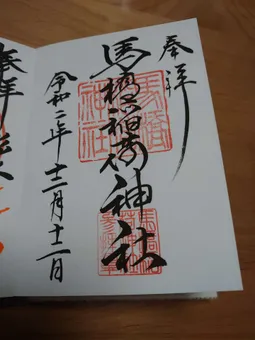 奉拝
馬橋稲荷神社
令和二年十二月十二日
馬橋
神社
奉拝